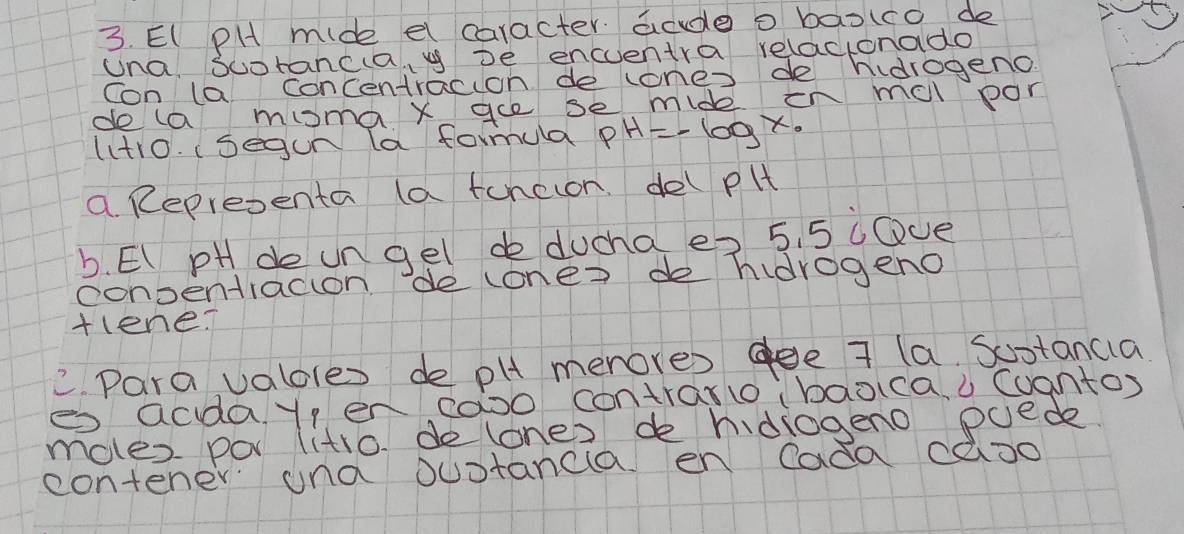 3. El pH mide el caracter ácido o basico de
una sustancia, y se encuentra relacionado
con la concentracion de iones de hidrogeno
de la misma x que se mide en mol por
litro. segun la formula pH = - log x.
a. Representa la funcion del pH
b. El pH de un gel de ducha es 5,5 ¿Que
consentracion de iones de hidrogeno
tiene?
c. para valores de pH menores que 7 la sustancia
es acida y, en caso contrario, basica, ¿ Cuantos
moles por litro de iones de hidrogeno puede
contener una sustancia en cada caso